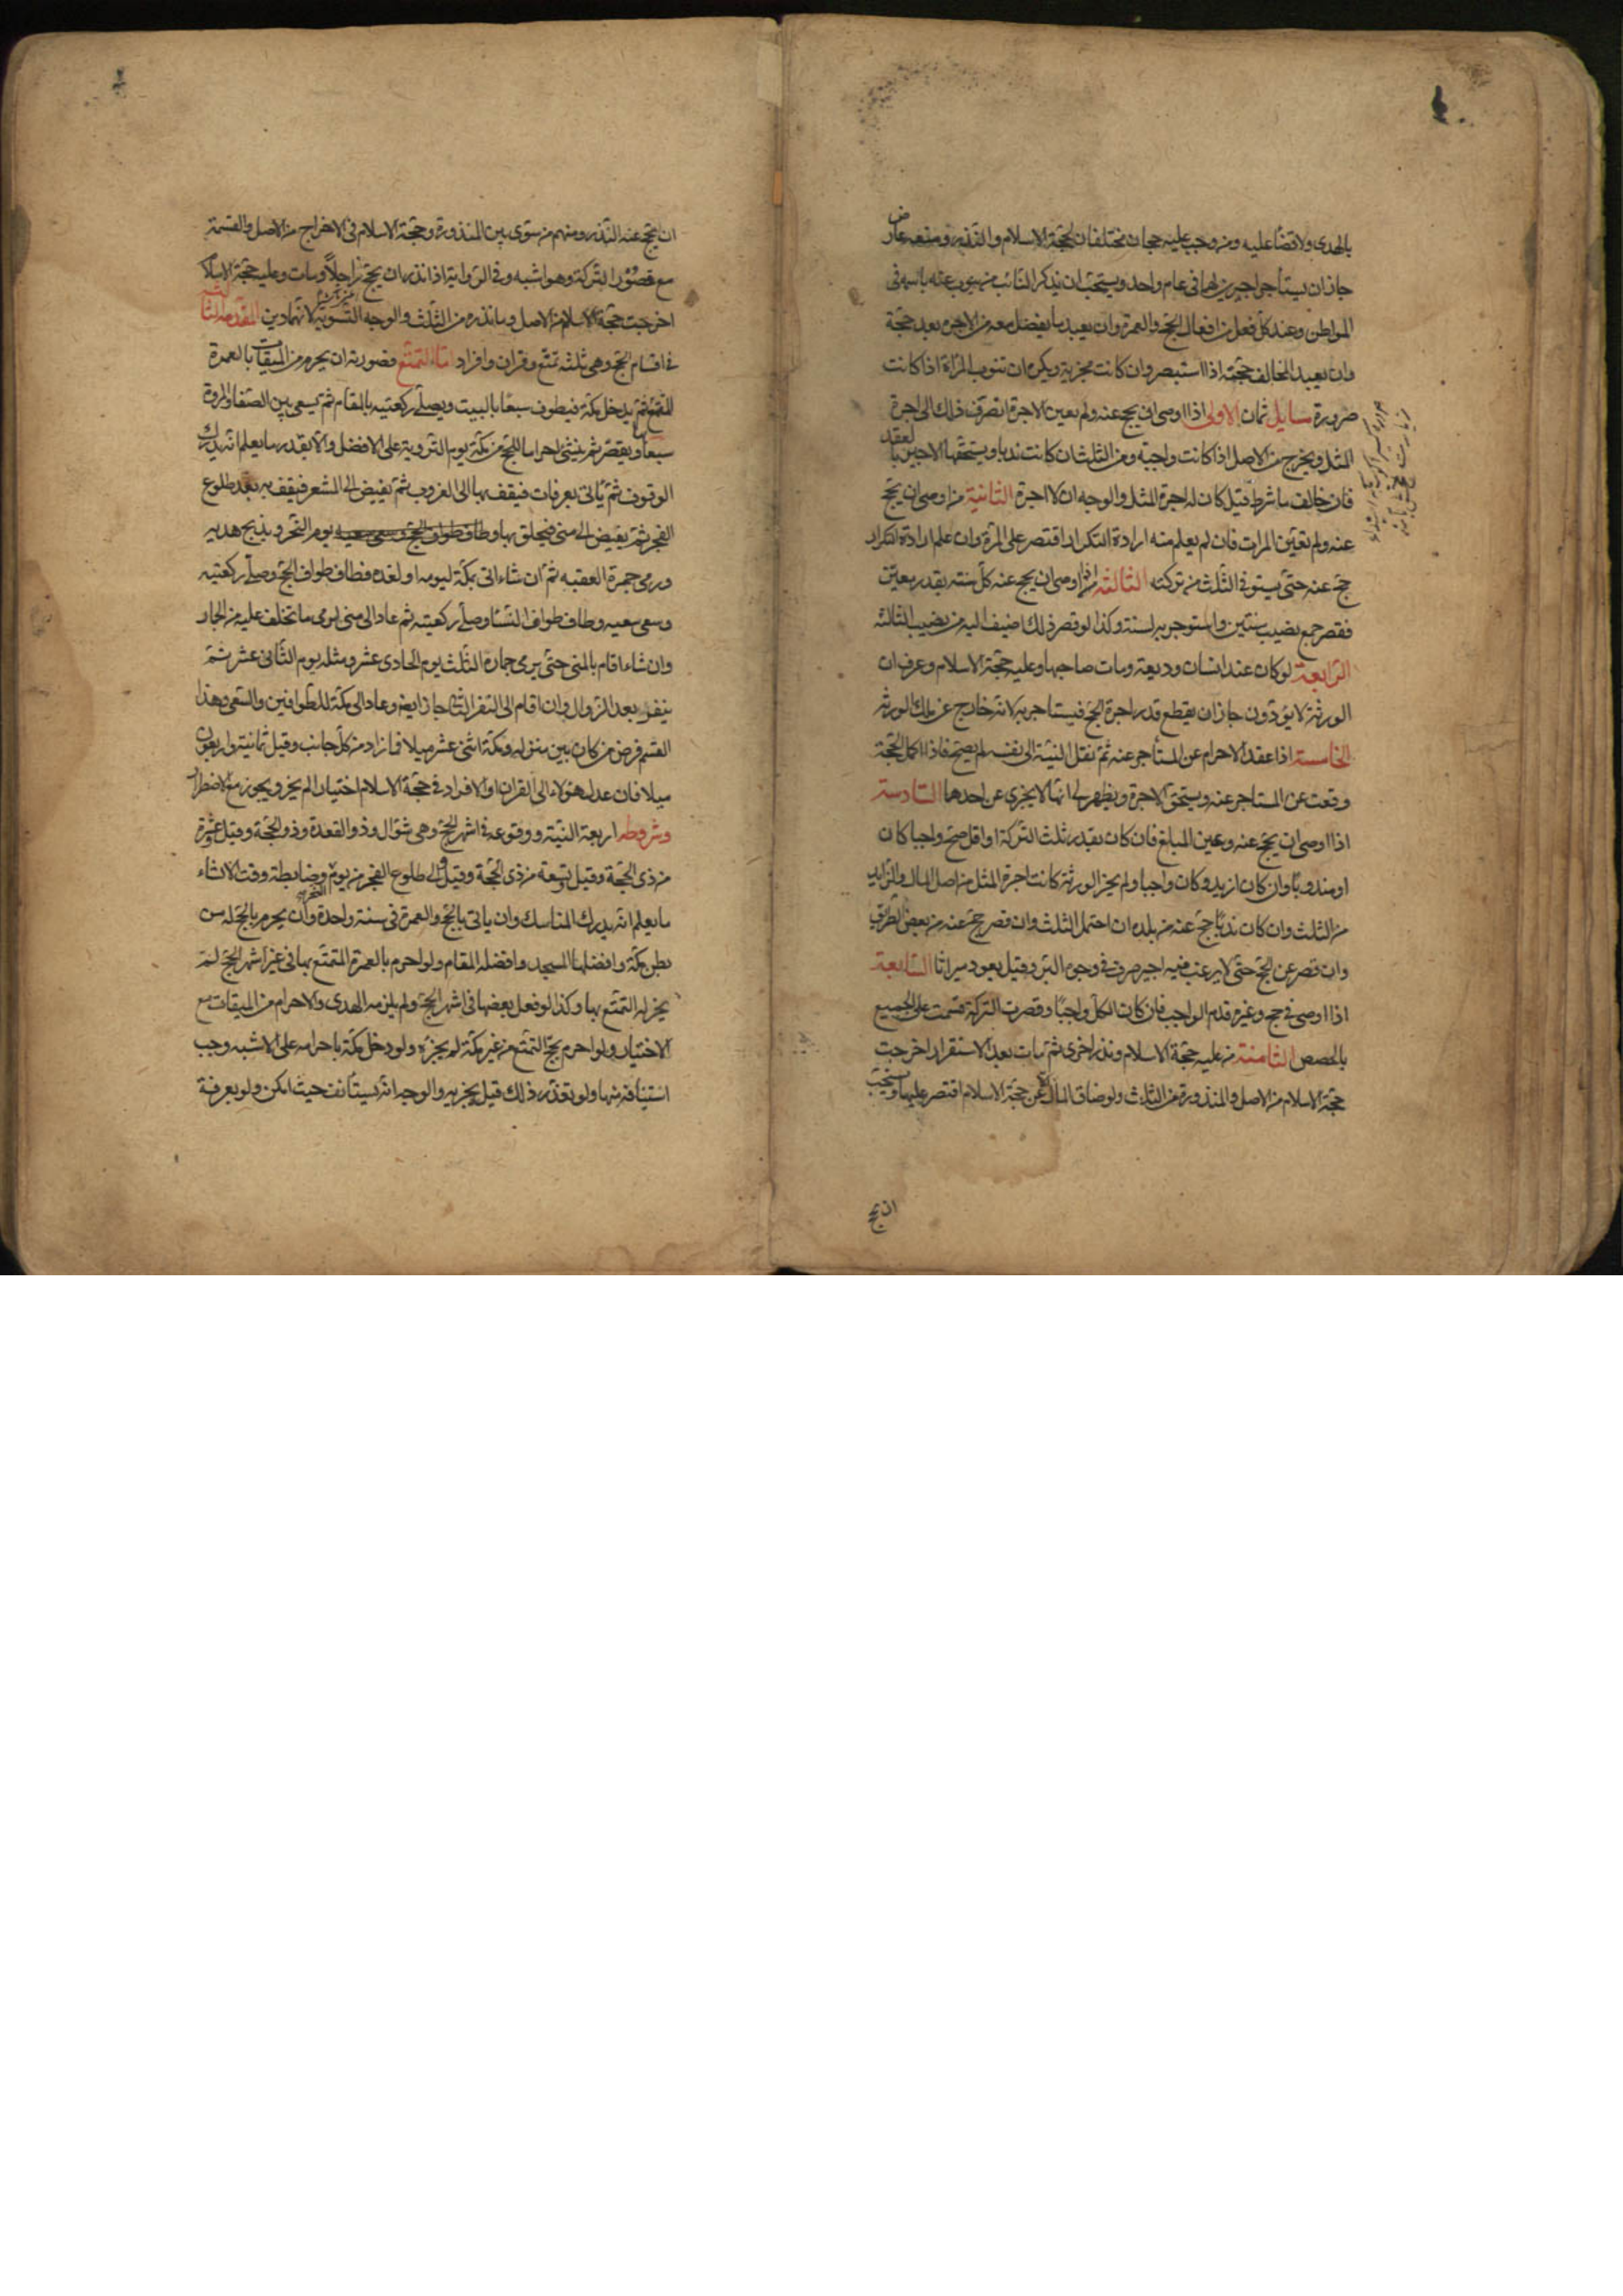 بالهدى ولا قضا عليه ومن وجب عليه حجان مختلفان كحجة الاسلام والنذر ومنعه عارض
جاز ان يستأجر اجيرين لهما فى عام واحد ويستحب ان يذكر النائب من ينوب عنه باسمه فى
المواطن وعند كل فعل من افعال الحج والعمرة وان يعيد ما يفضل معه من الاجرة بعد حجة
وان يعيد المخالف حجته اذا استبصر وان كانت مجزية ويكره ان تنوب المراة اذا كانت
صرورة مسايل ثمان الاولى اذا اوصى ان يحج عنه ولم يعين الاجرة انصرف ذلك الى اجرة
المثل ويخرج من الاصل اذا كانت واجبة ومن الثلث ان كانت ندبا ويستحقها الاجير بالعقد
فان خالف ما شرط قيل كان له اجرة المثل والوجه ان لا اجرة الثانية من اوصى ان يحج
عنه ولم يعين المرات فان لم يعلم منه ارادة التكرار اقتصر على المرة وان علم ارادة التكرار
حج عنه حتى يستوفى الثلث من تركته الثالثة اذا اوصى ان يحج عنه كل سنة بقدر معين
فقصر جمع نصيب سنتين واستوجر به لسنة وكذا لو قصر ذلك اضيف اليه من نصيب الثالثة
الرابعة لو كان عند انسان وديعة ومات صاحبها وعليه حجة الاسلام وعرف ان
الورثة لا يؤدون جاز ان يقطع قدر اجرة الحج فيستاجر به لانه خارج عن ملك الورثة
الخامسة اذا عقد الاحرام عن المستأجر عنه ثم نقل النية الى نفسه لم يصح فاذا اكمل الحجة
وقعت عن المستاجر عنه ويستحق الاجرة ويظهر لى انها لا يجزى عن احدهما السادسة
اذا اوصى ان يحج عنه وعين المبلغ فان كان بقدر ثلث التركة او اقل صح واجبا كان
او مندوبا وان كان ازيد وكان واجبا ولم يجز الورثة كانت اجرة المثل من اصل المال والزايد
من الثلث وان كان ندبا حج عنه من بلده ان احتمل الثلث وان قصر حج عنه من بعض الطريق
وان قصر عن الحج حتى لا يرغب فيه اجير صرف فى وجوه البر وقيل يعود ميراثا السابعة
اذا اوصى فى حج وغيره قدم الواجب فان كان الكل واجبا وقصرت التركة قسمت على الجميع
بالحصص الثامنة من عليه حجة الاسلام ونذر اخرى ثم مات بعد الاستقرار اخرجت
حجة الاسلام من الاصل والمنذورة من الثلث ولو ضاق المال الا عن حجة الاسلام اقتصر عليها ويستحب
ان يحج
ان يحج عنه النذر ومنهم من سوى بين المنذورة وحجة الاسلام فى الاخراج من الاصل والقسمة
مع قصور التركة وهو اشبه وفى الرواية اذا نذر ان يحج رجلا ومات وعليه حجة الاسلام
اخرجت حجة الاسلام من الاصل وما نذره من الثلث والوجه التسوية لانهما دين المقدمة الثالثة
فى اقسام الحج وهى ثلثه تمتع وقران وافراد اما التمتع فصورته ان يحرم من الميقات بالعمرة
المتمتع ثم يدخل مكة فيطوف سبعا بالبيت ويصلى ركعتيه بالمقام ثم يسعى بين الصفا والمروة
سبعا ويقصر ثم ينشئ احراما للحج من مكة يوم التروية على الافضل والا بقدر ما يعلم انه يدرك
الوقوف ثم ياتى بعرفات فيقف بها الى الغروب ثم يفيض الى المشعر فيقف به بعد طلوع
الفجر ثم يفيض الى منى فيحلق بها وطاف طواف الحج وسعى سعيه يوم النحر ويذبح هديه
ورمى جمرة العقبه ثم ان شاء اتى مكة ليومه او لغده فطاف طواف الحج وصلى ركعتيه
وسعى سعيه وطاف طواف النسا وصلى ركعتيه ثم عاد الى منى لرمى ما تخلف عليه من الجمار
وان شاء اقام بالمنى حتى يرمى جماره الثلث يوم الحادى عشر ومثله يوم الثانى عشر ثم
ينفر بعد الزوال وان اقام الى النفر الثانى جاز ايضا وعاد الى مكة للطوافين والسعى وهذا
القسم فرض من كان بين منزله ومكة اثنى عشر ميلا فما زاد من كل جانب وقيل ثمانية واربعون
ميلا فان عدل هؤلاء الى القران او الافراد فى حجة الاسلام اختيارا لم يجز ويجوز مع الاضطرار
وشروطه اربعة النية ووقوعه فى اشهر الحج وهى شوال وذو القعدة وذو الحجة وقيل عشرة
من ذى الحجة وقيل تسعة من ذى الحجة وقيل الى طلوع الفجر من يوم النحر وضابطة وقت الانشاء
ما يعلم انه يدرك المناسك وان ياتى بالحج والعمرة فى سنة واحدة وان يحرم بالحج له من
بطن مكة وافضلها المسجد وافضله المقام ولو احرم بالعمرة المتمتع بها فى غير اشهر الحج لم
يجز له التمتع بها وكذا لو فعل بعضها فى اشهر الحج ولم يلزمه الهدى والاحرام من الميقات مع
الاختيار ولو احرم بحج التمتع من غير مكة لم يجزه ولو دخل مكة باحرامه على الاشبه وجب
استينافه منها ولو تعذر ذلك قيل يجزيه والوجه انه يستأنف حيث امكن ولو بعرفة